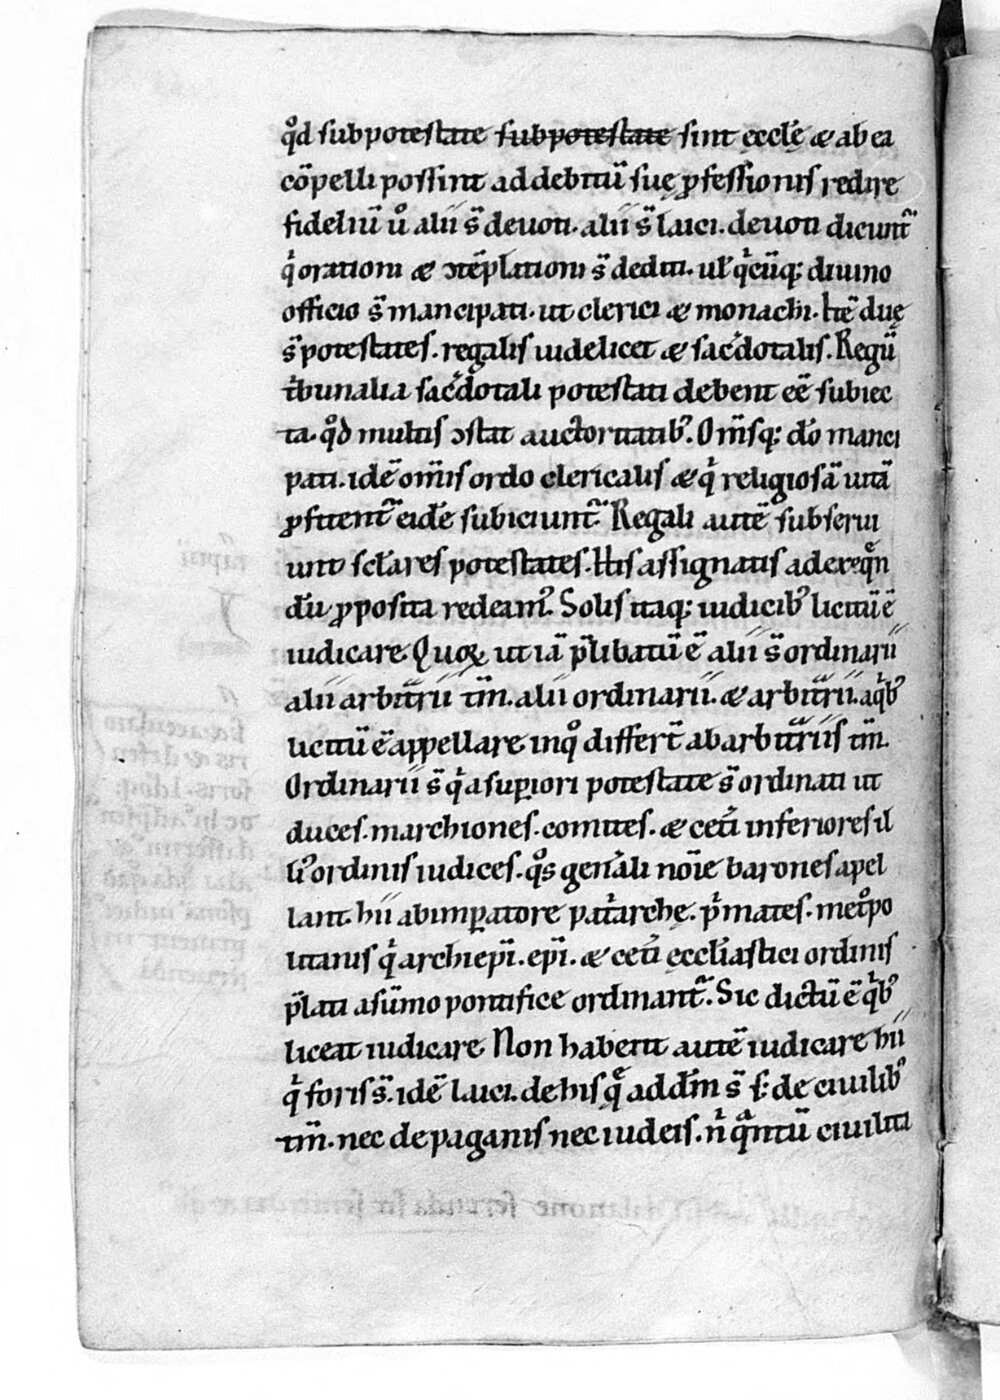 qͦd sub potestate sub potestate sint ęcclę̄ & ab ea
cōpelli possint ad debitū suę ꝓfessionis redire
fideliū u̾ͦ alii s̄ deuoti. alii s̄ laici. deuoti dicunt᷑
qͥ orationi & ɔtēplationi s̄ dediti. ul̾ qͥcūq; diuino
officio s̄ mancipati. ut clerici & monachi. hīc duę
s̄ potestates. regalis uidelicet & sac̾dotalis. Regū
tͥbunalia sac̾dotali potestati debent eē̄ subiec
ta. qͦd multis ɔstat auctoritatib᷒. Om̄sq; d̄o manci
pati. idē om̄is ordo clericalis & qͥ religiosā uitā
ꝓfitent᷑ eidē subiciunt᷑. Regali autē subserui
unt sc̄lares potestates. His assignatis ad ereqͣn
dū ꝓposita redeam᷒. Solis itaq; iudicib᷒ licitū ē
iudicare. Quoꝝ ut iā p̄libatū ē alii s̄ ordinarii
alii arbitͣrii tm̄. alii ordinarii. & arbitͣrii. a qͥb᷒
licitū ē appellare in qͦ differt᷑ ab arbitͣriis tm̄.
Ordinarii s̄ qͥ a suꝑiori potestate s̄ ordinati ut
duces. marchiones. comites. & cet̾i inferiores il
li᷒ ordinis iudices. qͦs gen̾ali noīe barones apel
lant. hii ab imꝑatore pat̾arche. pͥmates. met̾ͦpo
litanis qͥ archiep̄i. ep̄i. & cet̾i ęccl̄iastici ordinis
p̄lati a sūmo pontifice ordinant᷑. Sic dictū ē qͥb᷒
liceat iudicare. Non habent autē iudicare hii
qͥ foris s̄. idē laici. de his qͣ̄ ad d̄m s̄ s; de ciuilib᷒
tm̄. nec de paganis nec iudeis. nͥ qͣntū ciuilita